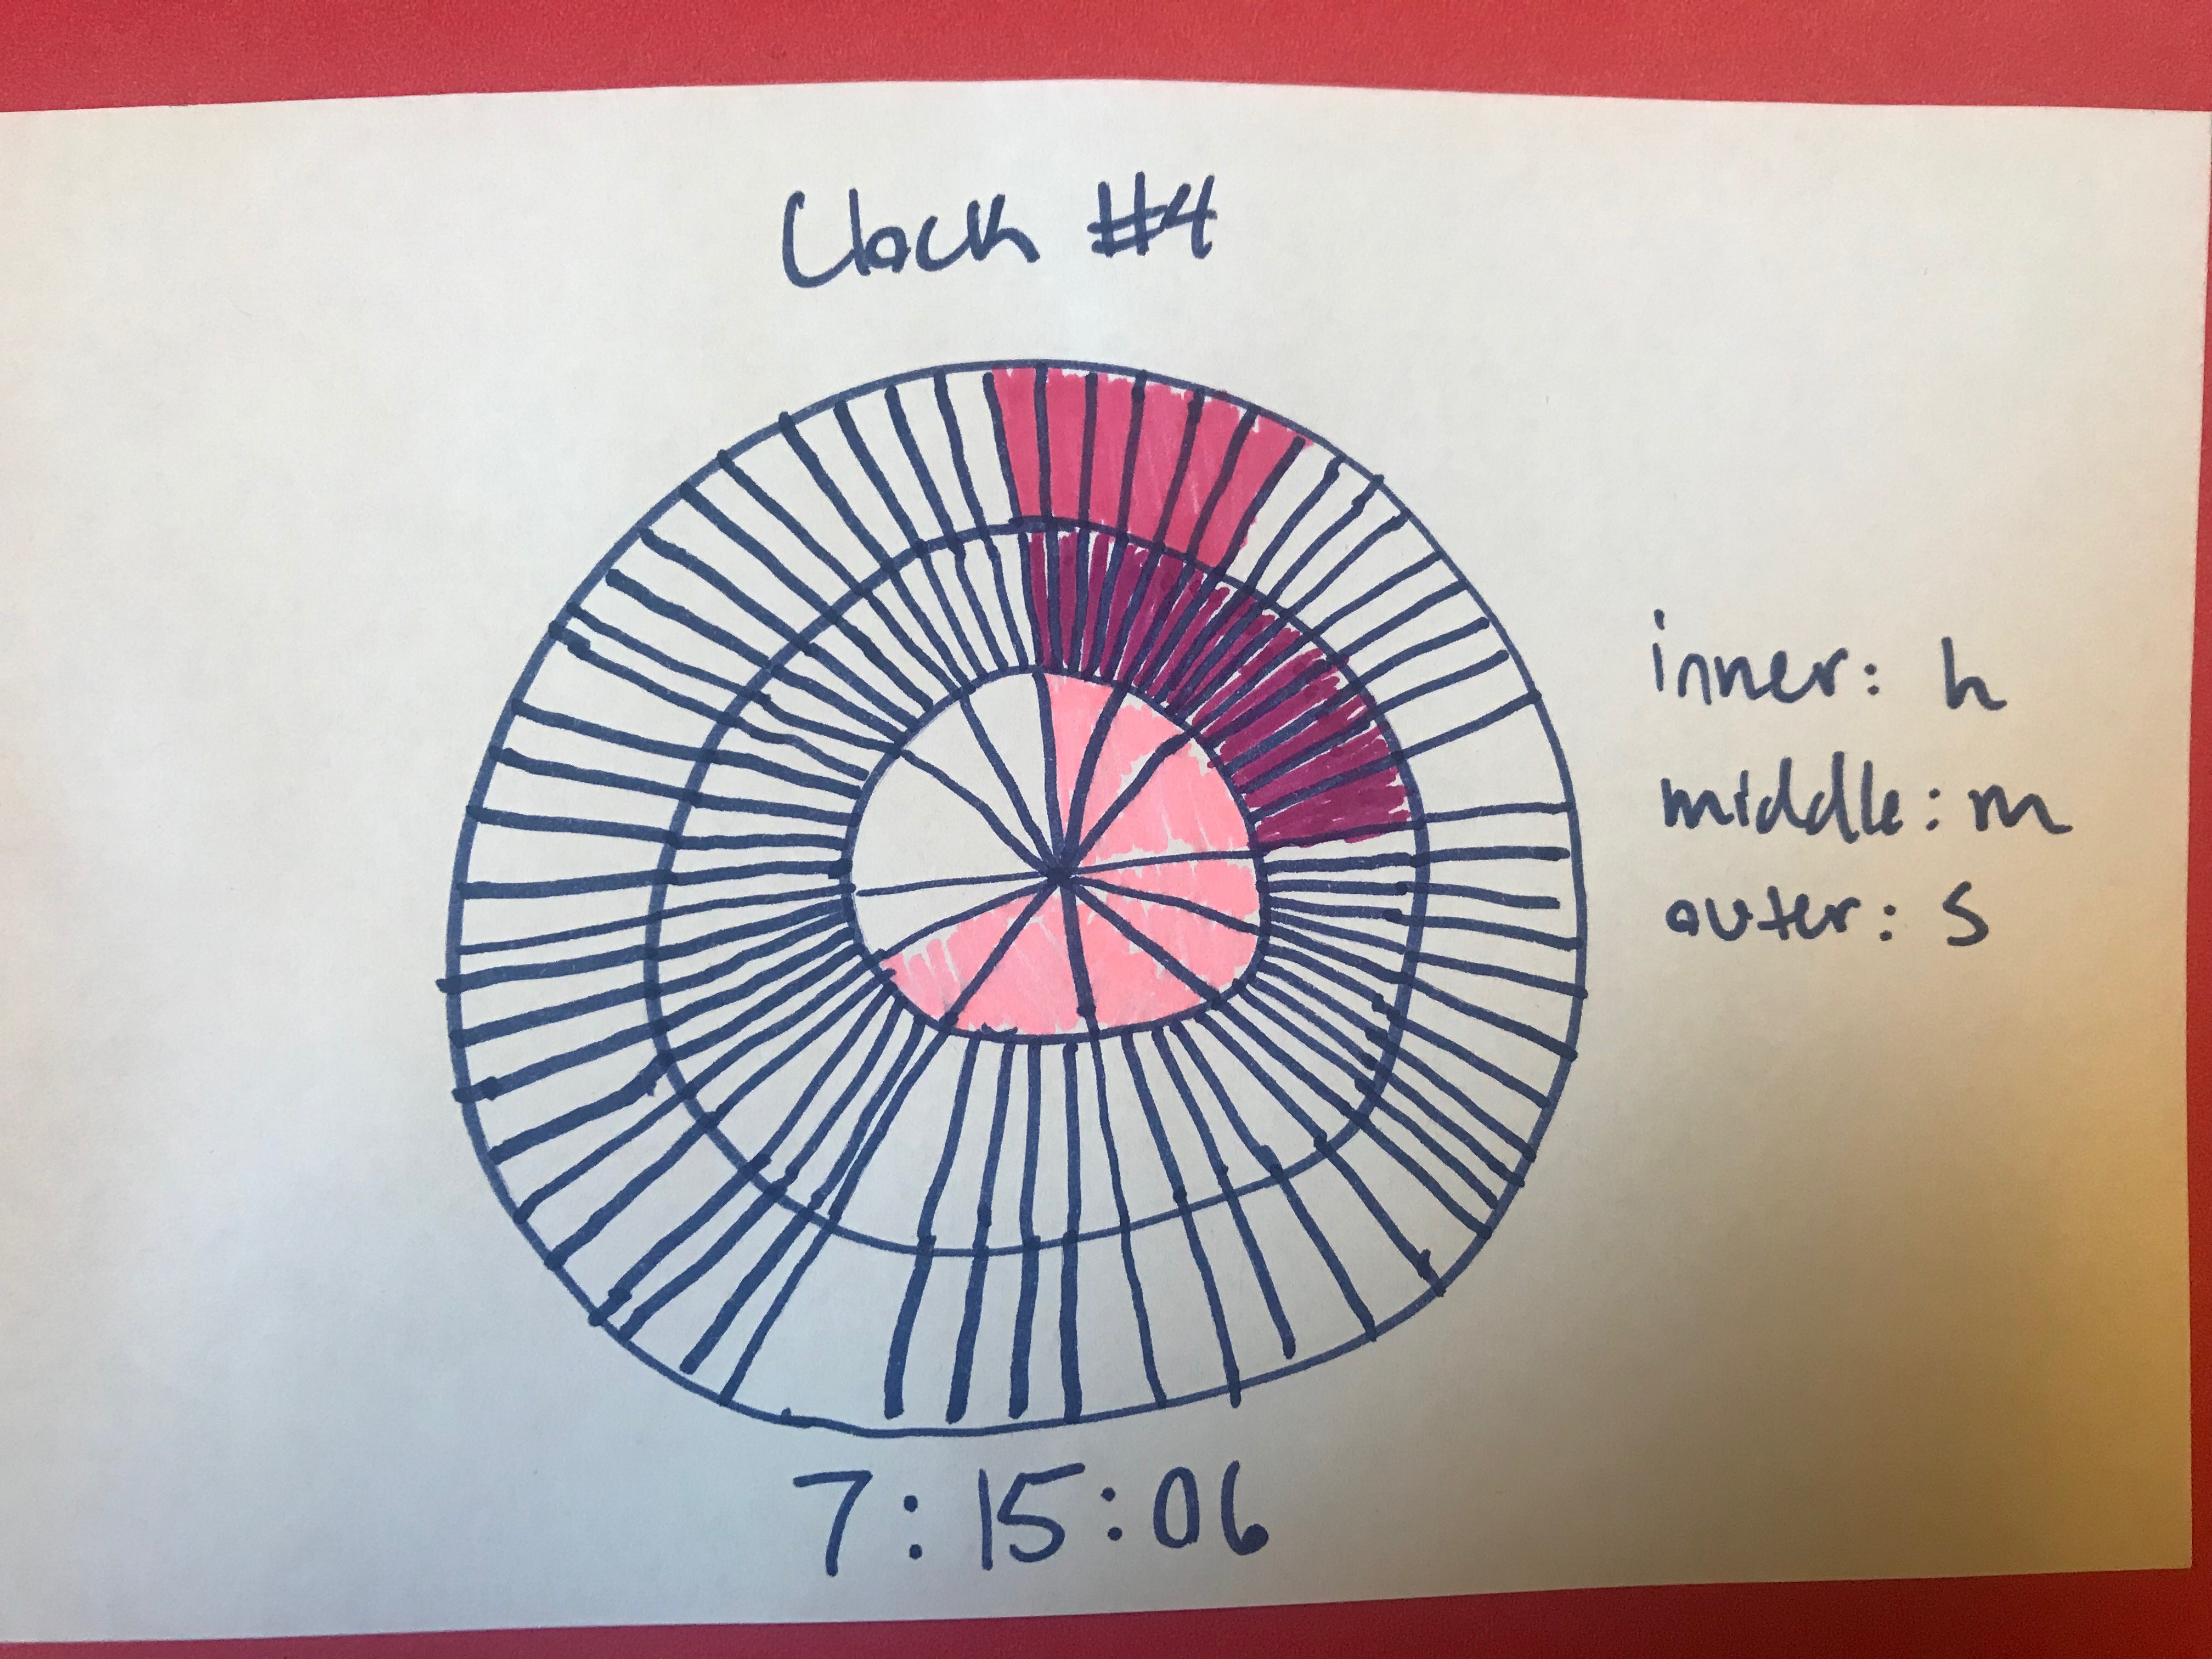 Clock #4
inner: h
middle: m
outer: s
7:15:06